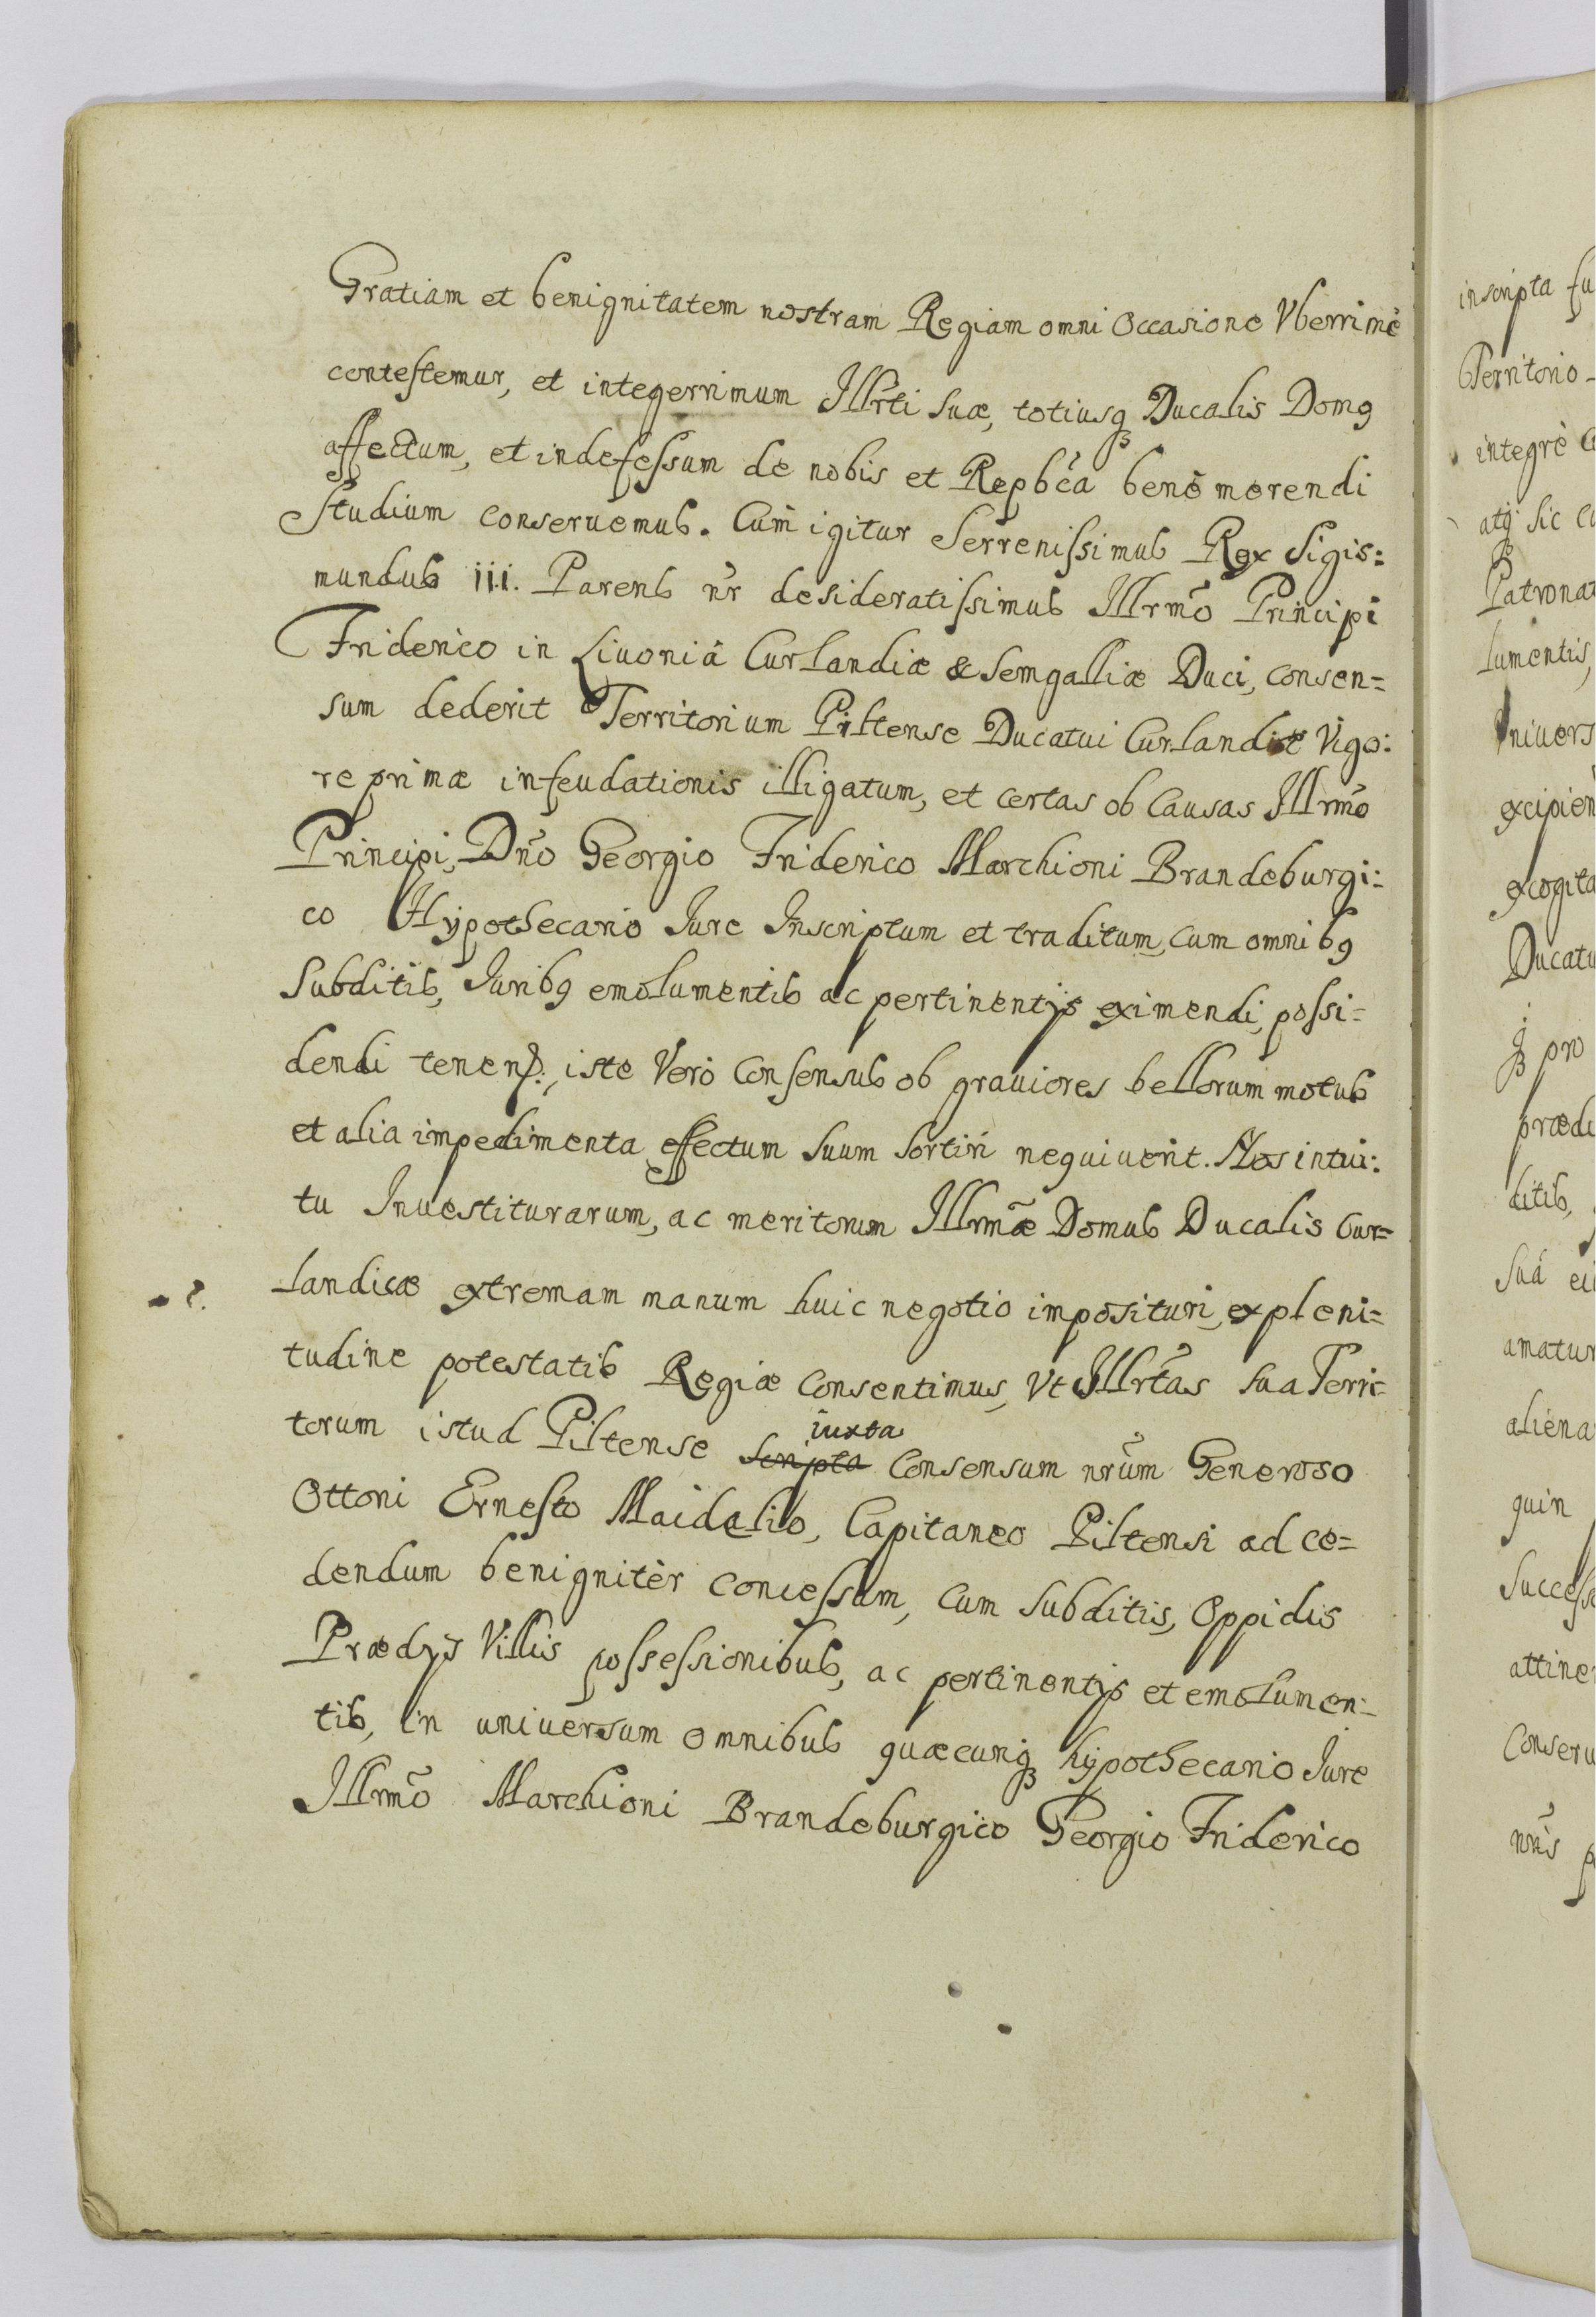 Gratiam et benignitatem nostram Regiam omni Occasione Vberrimè
contestemur, et integerrimum Illrti suæ, totiusq Ducalis Dom9
affectum, et indefessum de nobis et Repbca benè merendi
studium conseruemus. Cum igitur Serrenissimus Rex Sigis=
mundus iii. Parens nr desideratissimus Illrmo Principi
Friderico in Liuoniâ Curlandiæ & Semgalliæ Duci, consen=
sum dederit Territorium Piltense Ducatui Curlandiæ Vigo:
re primæ infeudationis illigatum, et certas ob Causas Illrmo
Principi, Dno Georgio Friderico Marchioni Brandeburgi:
co Hypothecario Iure Inscriptum et traditum, cum omnib9
Subditis, Iurib9 emolumentis ac pertinentijs eximendi, possi=
dendi iste Verò Consensus ob grauiores bellorum motus
et alia impedimenta effectum suum sortiri nequiuerit. Nos intui:
tu Inuestiturarum, ac meritorum Illrmæ Domus Ducalis Cur=
landicæ extremam manum huic negotio imposituri, ex pleni=
tudine potestatis Regiæ Consentimus, Vt Illrtas sua Terri=
torum istud Piltense scripta iuxta Consensum nrum Generoso
Ottoni Ernesto Maidelio, Capitaneo Piltensi ad ce=
dendum benignitèr concessum, cum subditis, Oppidis
Prædijs Villis possessionibus, ac pertinentijs et emolumen:
tis, in uniuersum omnibus quæcunq hypothecario Iure
Illrmo Marchioni Brandeburgico Georgio Friderico
inscripta fu
Territorio
integrè
atq sic
Patronat
lumentis,
niuers
excipien
excogita
Ducatu
q pro
prædi
ditis,
suâ ei
amatur
aliena
quin
Success
attine
Conseru
nris p